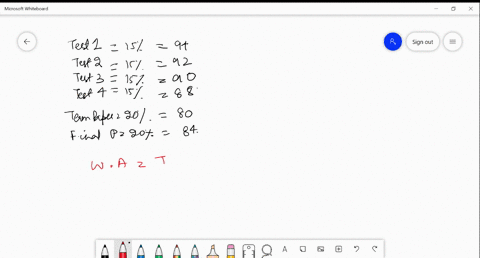 Microsoft Whiteboard
Sign out
Test 1 = 15% = 94
Test 2 = 15% = 92
Test 3 = 15% = 90
Test 4 = 15% = 88
Term Paper = 20% = 80
Final P = 20% = 84
W.A = T